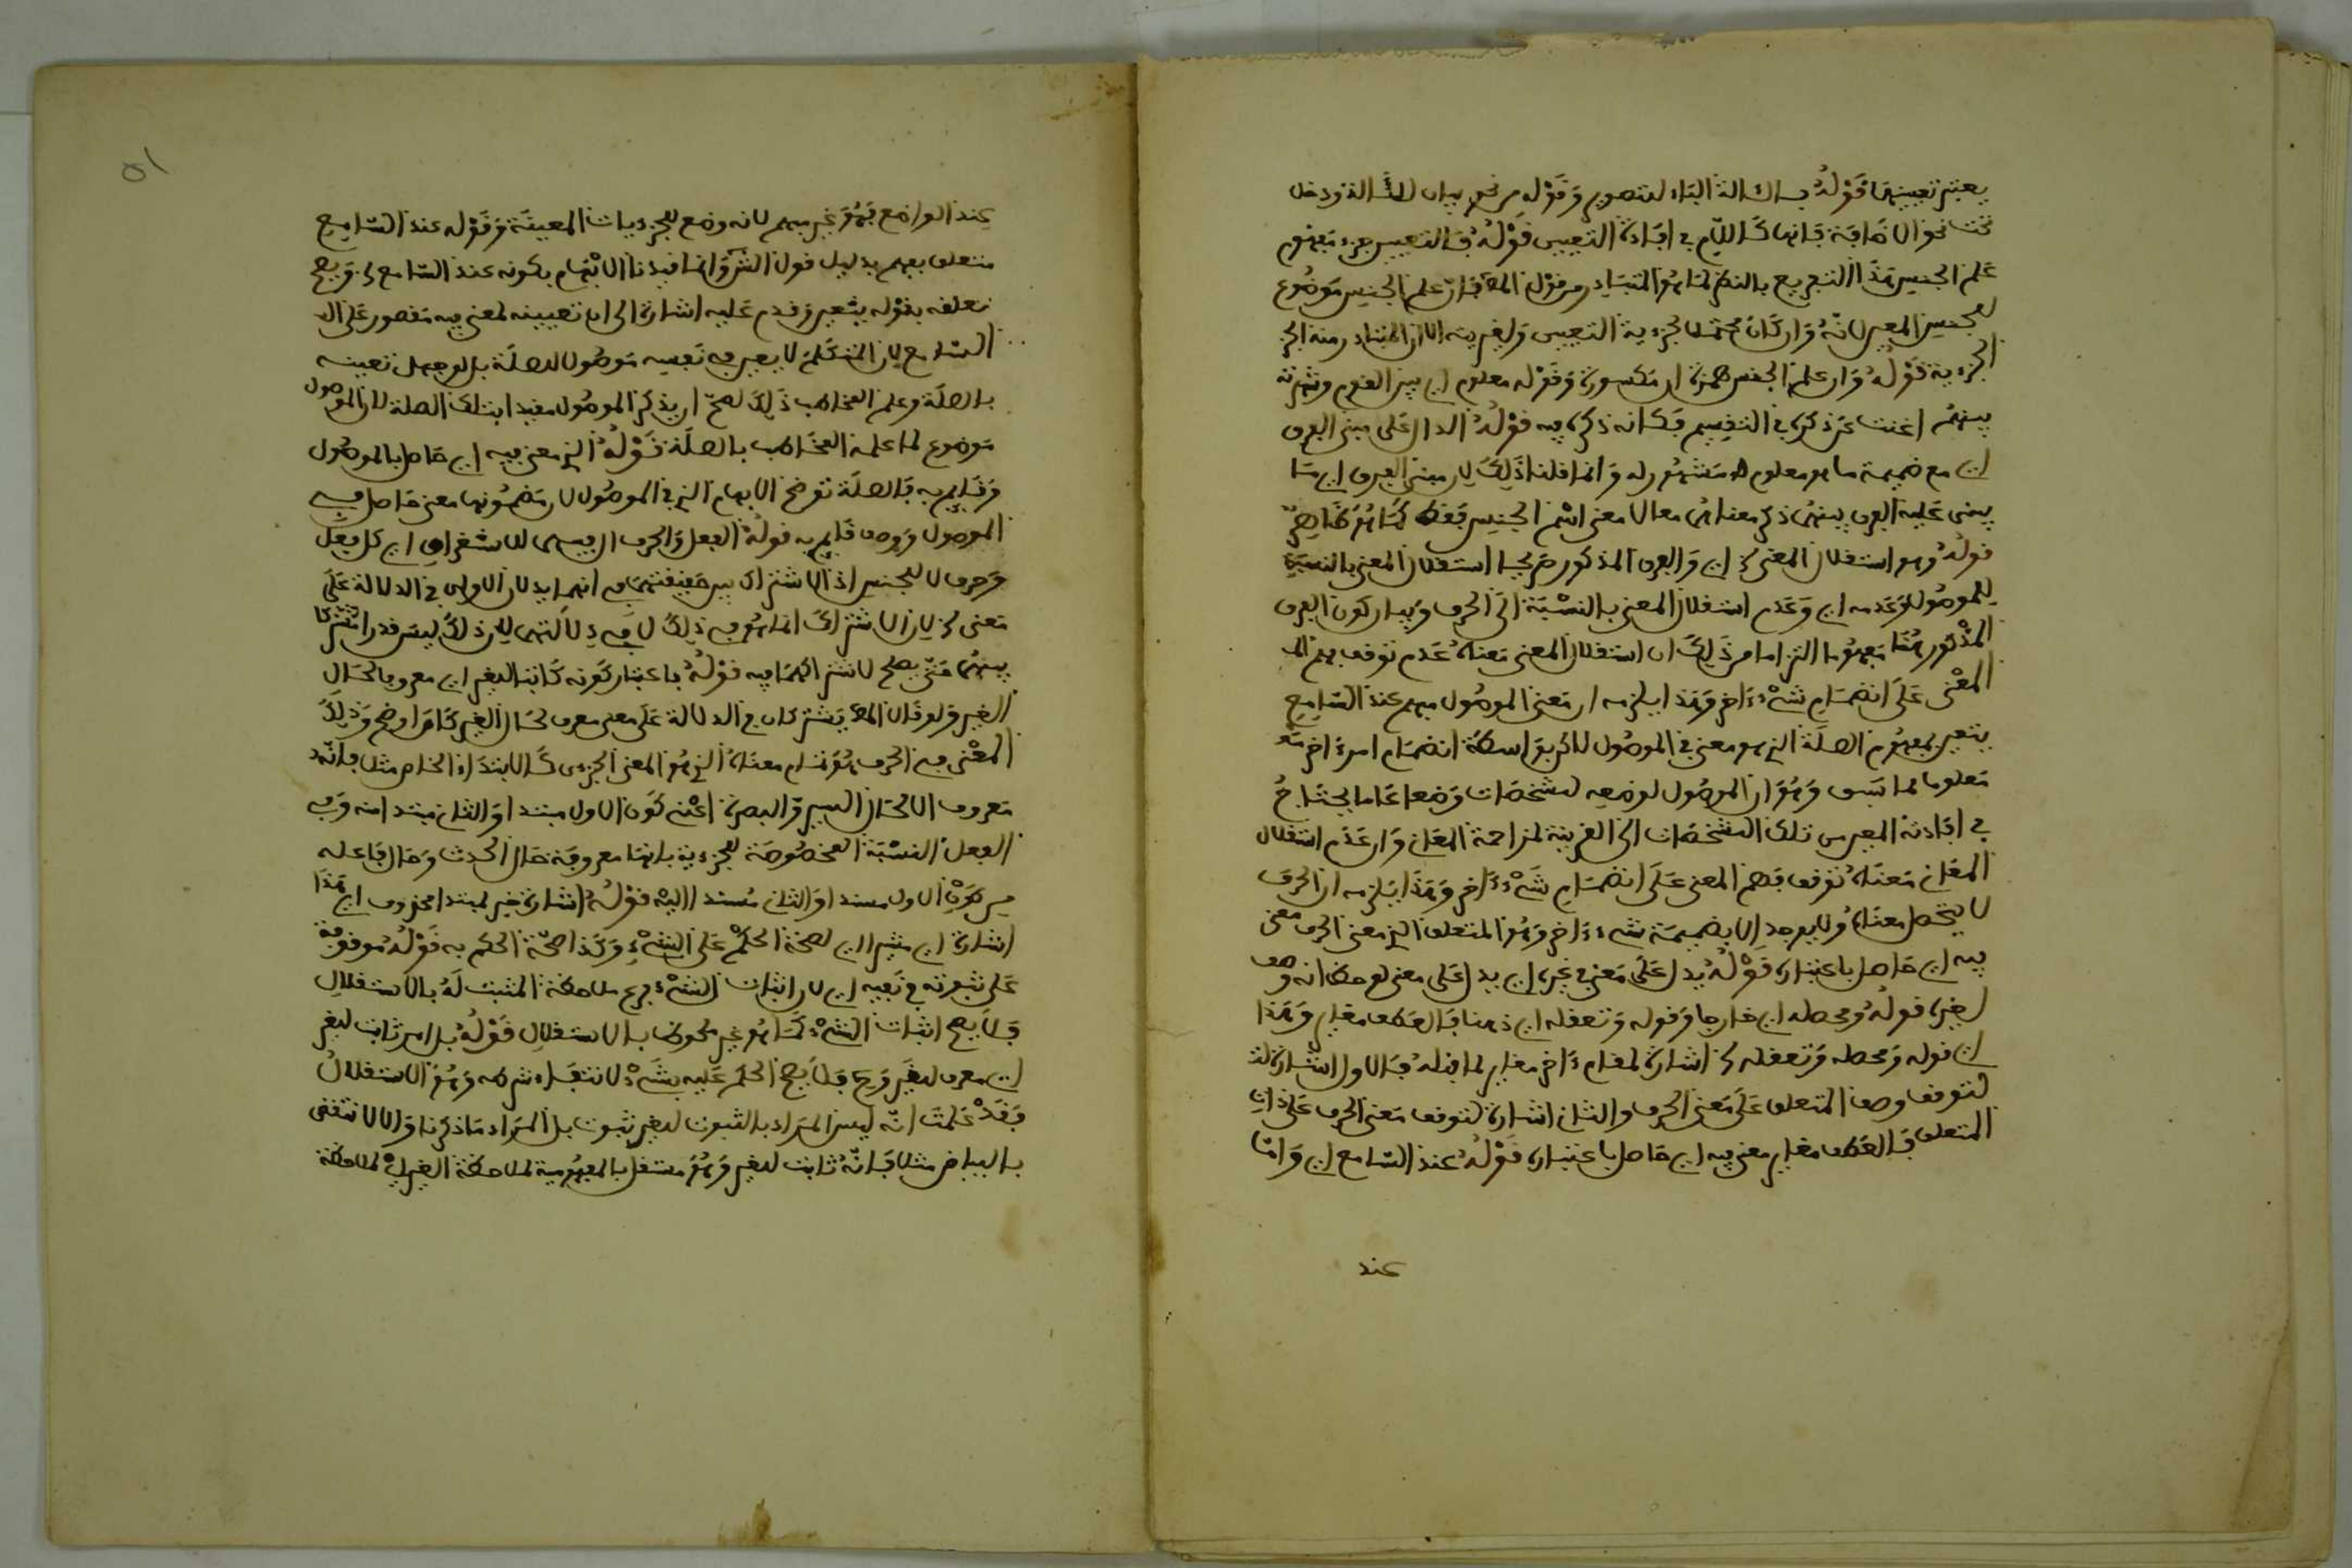 يعتبر تعيينها قوله بذلك الة الباء للتصوير وقوله من نحو بيان لتلك الة ودخل
تحت نحو الاضافة فانها كاللام في افادة التعيين قوله فالتعيين جزء مفهوم
علم الجنس هذا التفريع بالنظر لما هو المتبادر من قول المص فان علم الجنس موضوع
للجنس المعين لانه وان كان محتملا لجزءية التعيين ولغيرها الا ان المتبادر منه
الجزءية قوله وان علم الجنس بهمزة ان مكسورة وقوله معلوم اي بين القوم وشهرته
بينهم اغنت عن ذكره في التقسيم فكانه ذكره فيه قوله الدال على مبنى الفرق
اي مع ضميمة ما هو معلوم مشهور له وانما قلنا ذلك لان مبنى الفرق اي ما
يبنى عليه الفرق بينهما ذكر معناهما معا لا معنى اسم الجنس فقط كما هو ظاهر
قوله وهو استقلال المعنى اي والفرق المذكور صريحا استقلال المعنى بالنسبة
للموصول وعدمه اي وعدم استقلال المعنى بالنسبة الى الحرف وبيان كون الفرق
المذكور هنا مفهوما التزاما من ذلك ان استقلال المعنى معناه عدم توقف فهم
المعنى على انضمام شىء ءاخر وهذا يلزمه ان معنى الموصول مبهم عند السامع
يتعين بمفهوم الصلة الذي هو معنى في الموصول لا بواسطة انضمام امر ءاخر
معلوما مما سبق وهو ان الموصول لوضعه لمشخصات وضعا عاما يحتاج
في افادته المعين من تلك المشخصات الى القرينة لمزاحمة المعاني وان عدم استقلال
المعاني معناه توقف فهم المعنى على انضمام شىء ءاخر وهذا يلزمه ان الحرف
لا يتحصل معناه ولا يوجد الا بضميمة شىء ءاخر وهو المتعلق الذي معنى الحرف معنى
فيه اي حاصل باعتباره قوله يدل على معنى في غيره اي يدل على معنى لوحظ انه وصف
لغيره قوله ومحصله اي خارجا وقوله وتعقله اي ذهنا فالعطف مغاير وهذا
اي قوله ومحصله وتعقله اشارة لمقام ءاخر مغاير لما قبله فالاول اشارة
لتوقف وصف المتعلق على معنى الحرف والثاني اشارة لتوقف معنى الحرف على ذات
المتعلق فالعطف مغاير معنى فيه اي حاصل باعتباره قوله عند السامع اي واما
عند
عند الواضع فهو غير مبهم لانه وضع للجزءيات المعينة وقوله عند السامع
متعلق بمبهم بدليل قول الش وانما قيدنا الابهام بكونه عند السامع ويصح
تعلقه بقوله يتعين وقدم عليه اشارة الى ان تعيينه لمعنى فيه مقصور على
السامع لان المتكلم لا يعين في نفسه موصولا لصلة بل لو جهل تعيينه
بالصلة وعلم المخاطب ذلك لصح ان يذكر الموصول مقيدا بتلك الصلة لان الموصول
موضوع لما علمه المخاطب بالصلة قوله الذي معنى فيه اي حاصل بالموصول
وقايم به فالصلة توضح الابهام الذي في الموصول لان مضمونها معنى حاصل في
الموصول ووصف قايم به قوله الفعل والحرف ال فيهما للاستغراق اي كل فعل
وحرف لا للجنس اذ الاشتراك بين حقيقتهما في انهما يدلان الاولى في الدلالة على
معنى لان الاشتراك انما هو في ذلك لا في دلالتهما لان ذلك ليس قدرا مشتركا
بينهما حتى يصلح لاشتراكهما فيه قوله باعتبار كونه ثابتا للغير اي معروفا لحال
الغير ولو قال المص يشتركان في الدلالة على معنى معرف لحال الغير كان اوضح وذلك
المعنى في الحرف هو تمام معناه الذي هو المعنى الجزءي كالابتداء الخاص مثلا فانه
معروف لحال السير والبصرة اعني كون الاول مبتدا والثاني مبتدا منه وفي
الفعل النسبة المخصوصة الجزءية فانها معروفة حال الحدث وحال فاعله
من كون الاول مسندا والثاني مسندا اليه قوله اشارة خبر لمبتدا محذوف اي هذا
اشارة اي مشير الى صحة الحكم على الشىء وكذا صحة الحكم به قوله موقوفة
على ثبوته في نفسه اي لان اثبات الشىء فرع ملاحظة المثبت له بالاستقلال
فلا يصح اثبات الشىء لما هو غير ملحوظ بالاستقلال قوله بل امر ثابت لغير
اي معرف لغيره فلا يصح الحكم عليه بشىء لانتفاء شرطه وهو الاستقلال
فقد علمت انه ليس المراد بالثبوت لغير ثبوت بل المراد ما ذكرنا والا لانتقض
بالبياض مثلا فانه ثابت لغير وهو مستقل بالمفهومية لملاحظة الغير لملاحظة
٥١